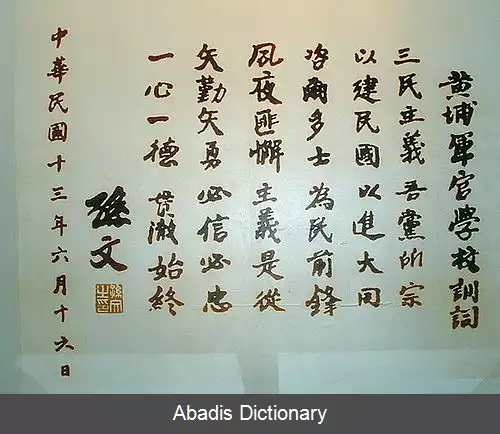 黃埔軍官學校訓詞
三民主義 吾黨所宗
以建民國 以進大同
咨爾多士 為民前鋒
夙夜匪懈 主義是從
矢勤矢勇 必信必忠
一心一德 貫澈始終
孫文
中華民國十三年六月十六日
Abadis Dictionary